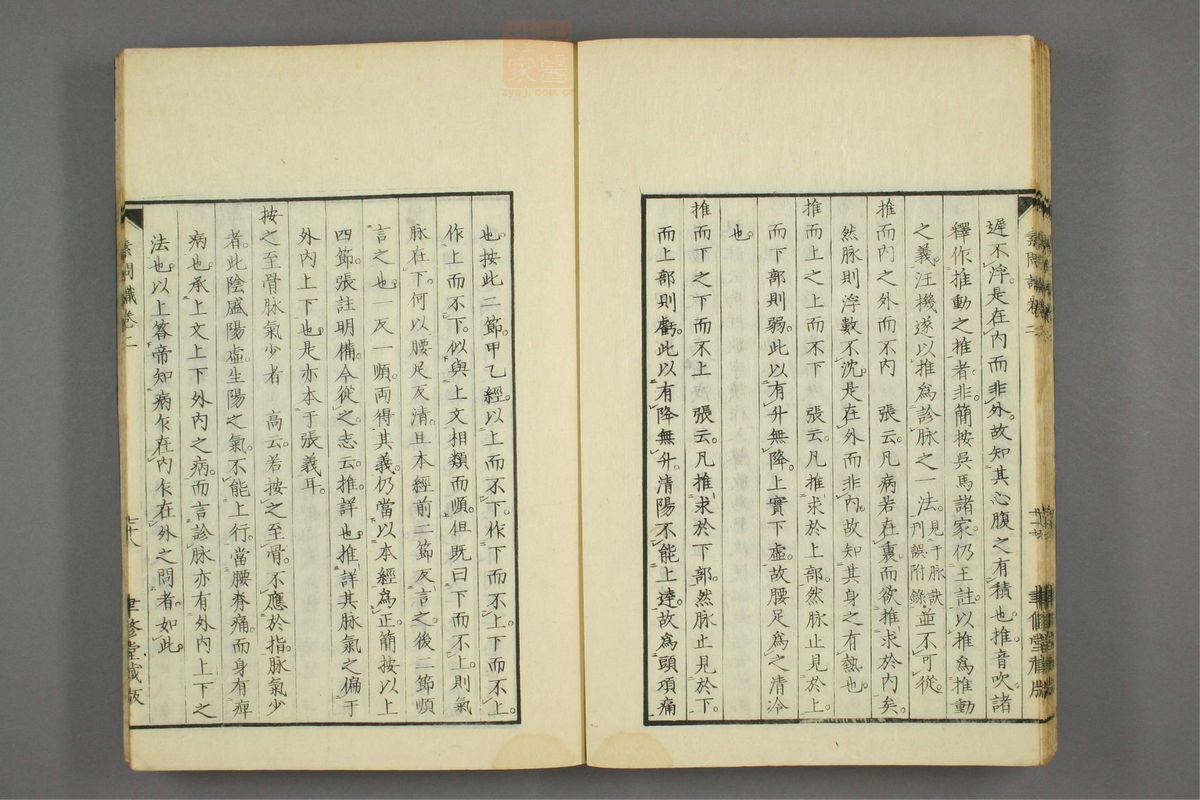 遲不浮是在內而非外故知其心腹之有積也推音吹諸
釋作推動之推者非簡按吳馬諸家仍王註以推爲推動
之義汪機遂以推爲診脉之一法見于脉訣刊誤附錄並不可從
推而內之外而不內　張云凡病若在裏而欲推求於內矣
然脉則浮數不沈是在外而非內故知其身之有熱也
推而上之上而不下　張云凡推求於上部然脉止見於上
而下部則弱此以有升無降上實下虛故腰足爲之清冷
也
推而下之下而不上　張云凡推求於下部然脉止見於下
而上部則虧此以有降無升清陽不能上達故爲頭項痛
也按此二節甲乙經以上而不下作下而不上下而不上
作上而不下似與上文相類而順但既曰下而不上則氣
脉在下何以腰足反清且本經前二節反言之後二節順
言之也一反一順兩得其義仍當以本經爲正簡按以上
四節張註明備今從之志云推詳也推詳其脉氣之偏于
外內上下也是亦本于張義耳
按之至骨脉氣少者　高云若按之至骨不應於指脉氣少
者此陰盛陽虛生陽之氣不能上行當腰脊痛而身有痺
病也承上文上下外內之病而言診脉亦有外內上下之
法也以上答帝知病乍在內乍在外之問者如此
素問識卷二
七十八
聿修堂藏版